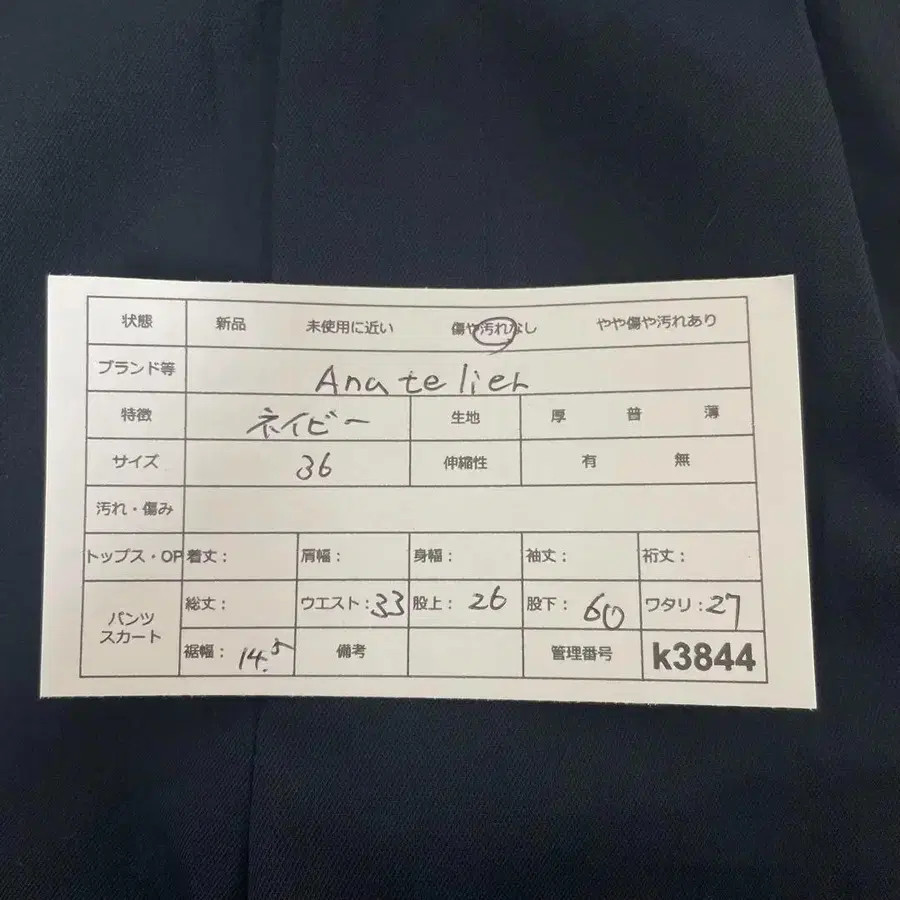 状態 新品 未使用に近い 傷や汚れなし やや傷や汚れあり
ブランド等 Anatelier
特徴 ネイビー 生地 厚 普 薄
サイズ 36 伸縮性 有 無
汚れ・傷み
トップス・OP 着丈: 肩幅: 身幅: 袖丈: 裄丈:
パンツ スカート 総丈: ウエスト:33 股上: 26 股下: 60 ワタリ:27
裾幅: 14.5 備考 管理番号 k3844